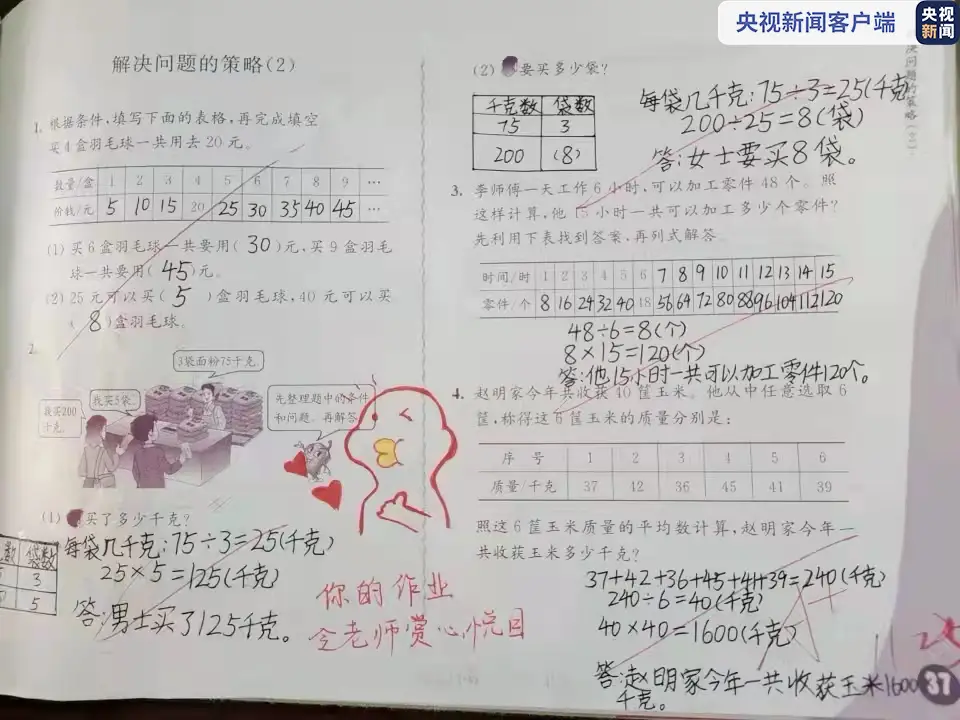 央视新闻客户端
央视
新闻
解决问题的策略(2)
1. 根据条件，填写下面的表格，再完成填空
买4盒羽毛球一共用去20元。
数量/盒 1 2 3 4 5 6 7 8 9 …
价钱/元 5 10 15 20 25 30 35 40 45 …
(1) 买6盒羽毛球一共要用( 30 )元，买9盒羽毛
球一共要用( 45 )元。
(2) 25元可以买( 5 )盒羽毛球，40元可以买
( 8 )盒羽毛球。
2.
3袋面粉75千克
我买200
千克
我买5袋
先整理题中的条件
和问题，再解答
(1) 买了多少千克？
数 袋数
3
5
每袋几千克:75÷3=25(千克)
25×5=125(千克)
答:男士买了125千克。
你的作业
令老师赏心悦目
(2) 要买多少袋？
千克数 袋数
75 3
200 (8)
每袋几千克:75÷3=25(千克
200÷25=8(袋)
答:女士要买8袋。
3. 李师傅一天工作6小时，可以加工零件48个。照
这样计算，他15小时一共可以加工多少个零件？
先利用下表找到答案，再列式解答。
时间/时 1 2 3 4 5 6 7 8 9 10 11 12 13 14 15
零件/个 8 16 24 32 40 48 56 64 72 80 88 96 104 112 120
48÷6=8(个)
8×15=120(个)
答:他15小时一共可以加工零件120个。
4. 赵明家今年共收获40筐玉米。他从中任意选取6
筐，称得这6筐玉米的质量分别是：
序号 1 2 3 4 5 6
质量/千克 37 42 36 45 41 39
照这6筐玉米质量的平均数计算，赵明家今年一
共收获玉米多少千克？
37+42+36+45+41+39=240(千克)
240÷6=40(千克)
40×40=1600(千克)
答:赵明家今年一共收获玉米1600
千克。
37